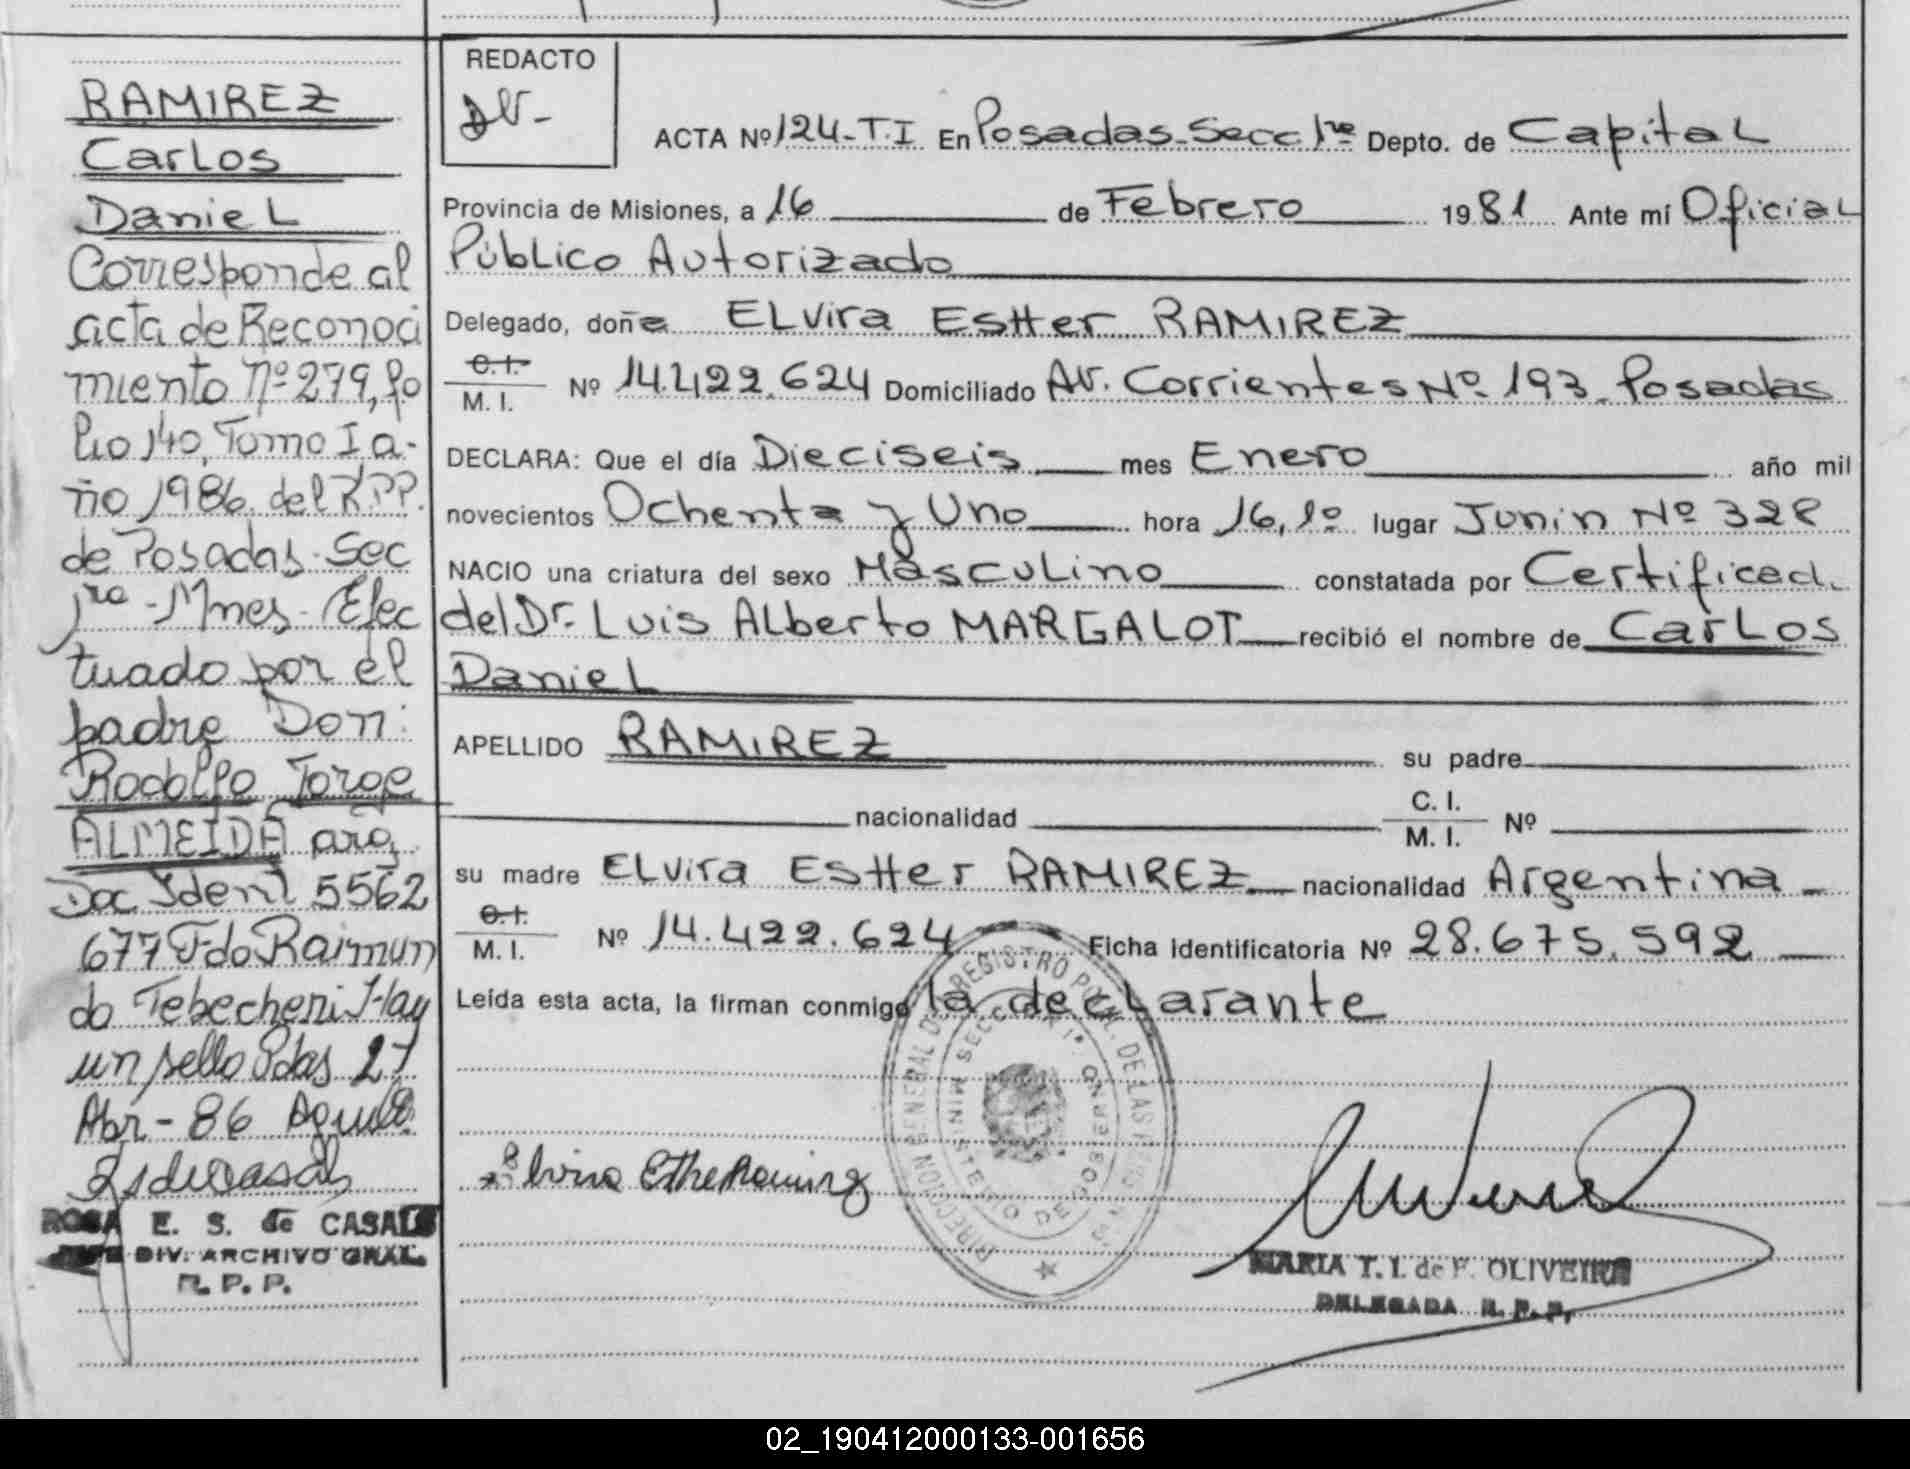 RAMIREZ
Carlos
Daniel
Corresponde al
acta de Reconoci
miento Nº 279, fo
lio 140, Tomo I a-
ño 1986 del R.P.P.
de Posadas - Sec
1ra - Mnes - Efec
tuado por el
padre Don:
Rodolfo Jorge
ALMEIDA arg.
Doc. Ident 5562
677 Fdo Raimun
do Tebecheri Hay
un sello Pdas 27
Abr - 86
ROSA E. S. de CASALS
JEFE DIV. ARCHIVO GRAL.
R. P. P.
REDACTO
ACTA Nº 124-T.I En Posadas-Secc 1re Depto. de Capital
Provincia de Misiones, a 16 de Febrero 1981 Ante mí Oficial
Público Autorizado
Delegado, doña Elvira Esther RAMIREZ
C.I.
M. I. Nº 14.422.624 Domiciliado Av. Corrientes Nº 193. Posadas
DECLARA: Que el día Dieciseis mes Enero año mil
novecientos Ochenta y Uno hora 16,1º lugar Junin Nº 328
NACIO una criatura del sexo Masculino constatada por Certificad.
del Dr. Luis Alberto MARGALOT recibió el nombre de Carlos
Daniel
APELLIDO RAMIREZ su padre
nacionalidad C. I.
M. I. Nº
su madre Elvira Esther RAMIREZ nacionalidad Argentina
C.I.
M. I. Nº 14.422.624 Ficha identificatoria Nº 28.675.592
Leída esta acta, la firman conmigo la declarante
DIRECCION GENERAL DEL REGISTRO PCIAL. DE LAS PERSONAS
MINISTERIO DE GOBIERNO
SECCION 1ª
MARIA T. I. de F. OLIVEIRA
DELEGADA R. P. P.
02_190412000133-001656